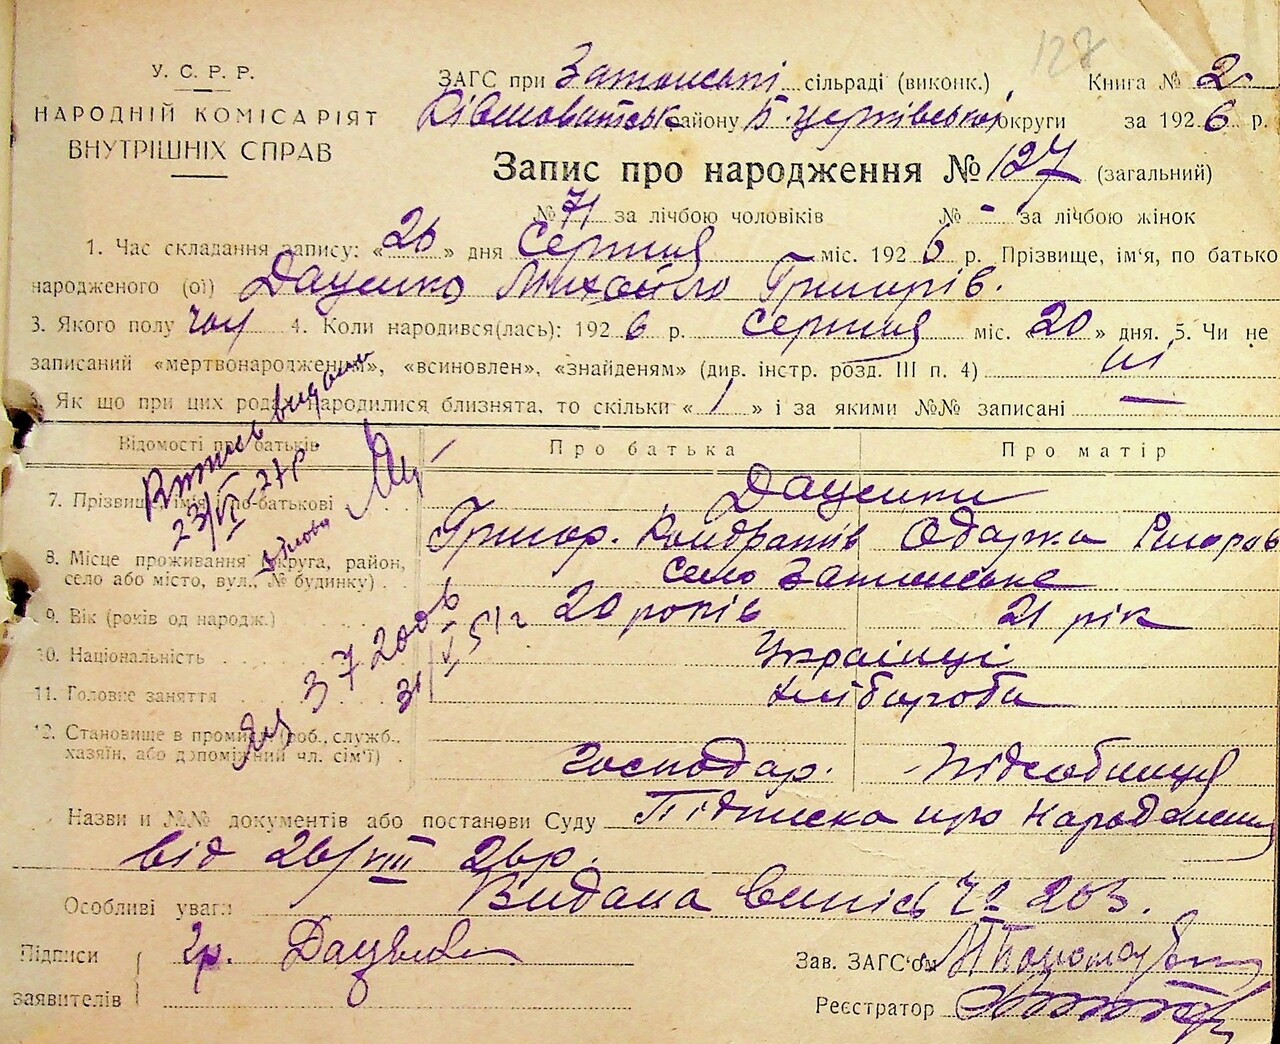 128
У. С. Р. Р.
НАРОДНІЙ КОМІСАРІЯТ
ВНУТРІШНІХ СПРАВ
ЗАГС при Затонській сільраді (виконк.) Книга № 2
району Б. Церківської округи за 1926 р.
Запис про народження № 127 (загальний)
№ 71 за лічбою чоловіків № - за лічбою жінок
1. Час складання запису: «26» дня Серпня міс. 1926 р. Прізвище, ім'я, по батько
народженого (ої) Даценко Михайло Григорів.
3. Якого полу чол 4. Коли народився(лась): 1926 р. серпня міс. «20» дня. 5. Чи не
записаний «мертвонародженим», «всиновлен», «знайденям» (див. інстр. розд. III п. 4) ні
Як що при цих родах народилися близнята, то скільки «1» і за якими №№ записані —
Відомості про батьків Про батька Про матір
7. Прізвище, ім'я і по-батькові Даценки
Григор. Кондратів Одарка
8. Місце проживання (округа, район,
село або місто, вул., № будинку) село
9. Вік (років од народж.) 20 років 21 рік
10. Національність Українці
11. Головне заняття хлібороби
12. Становище в промислі (роб., служб.,
хазяїн, або допоміжний чл. сім'ї) господар. підсобниця
Назви и №№ документів або постанови Суду Підписка про народження
від 26/VIII 26р.
Особливі уваги Видана випись
Підписи
заявителів гр. Даценко
Зав. ЗАГС'ом
Реєстратор
Випись видана
23/VI 27р.
37200б
31/V 51 г